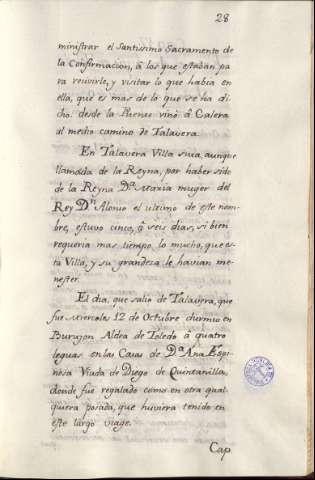 28
ministrar el Santissimo Sacramento de
la Confirmacion, á los que estaban pa
ra recivirle, y visitar lo que habia en
ella, que es mas de lo que se ha di
cho, desde la Puente vino á Calera
al medio camino de Talavera.
En Talavera Villa suia, aunque
llamada de la Reyna, por haber sido
de la Reyna Dª Maria muger del
Rey Dn Alonso el ultimo de este nom
bre, estuvo cinco, ó seis dias, si bien
requeria mas tiempo, lo mucho, que es
ta Villa, y su grandeza le havian me
nester.
El dia, que salio de Talavera, que
fue Miercoles 12 de Octubre durmio en
Burujon Aldea de Toledo á quatro
leguas en las Casas de Dª Ana Espi
nosa Viuda de Diego de Quintanilla,
donde fue regalado como en otra qual
quiera posada, que huviera tenido en
este largo viage.
Cap